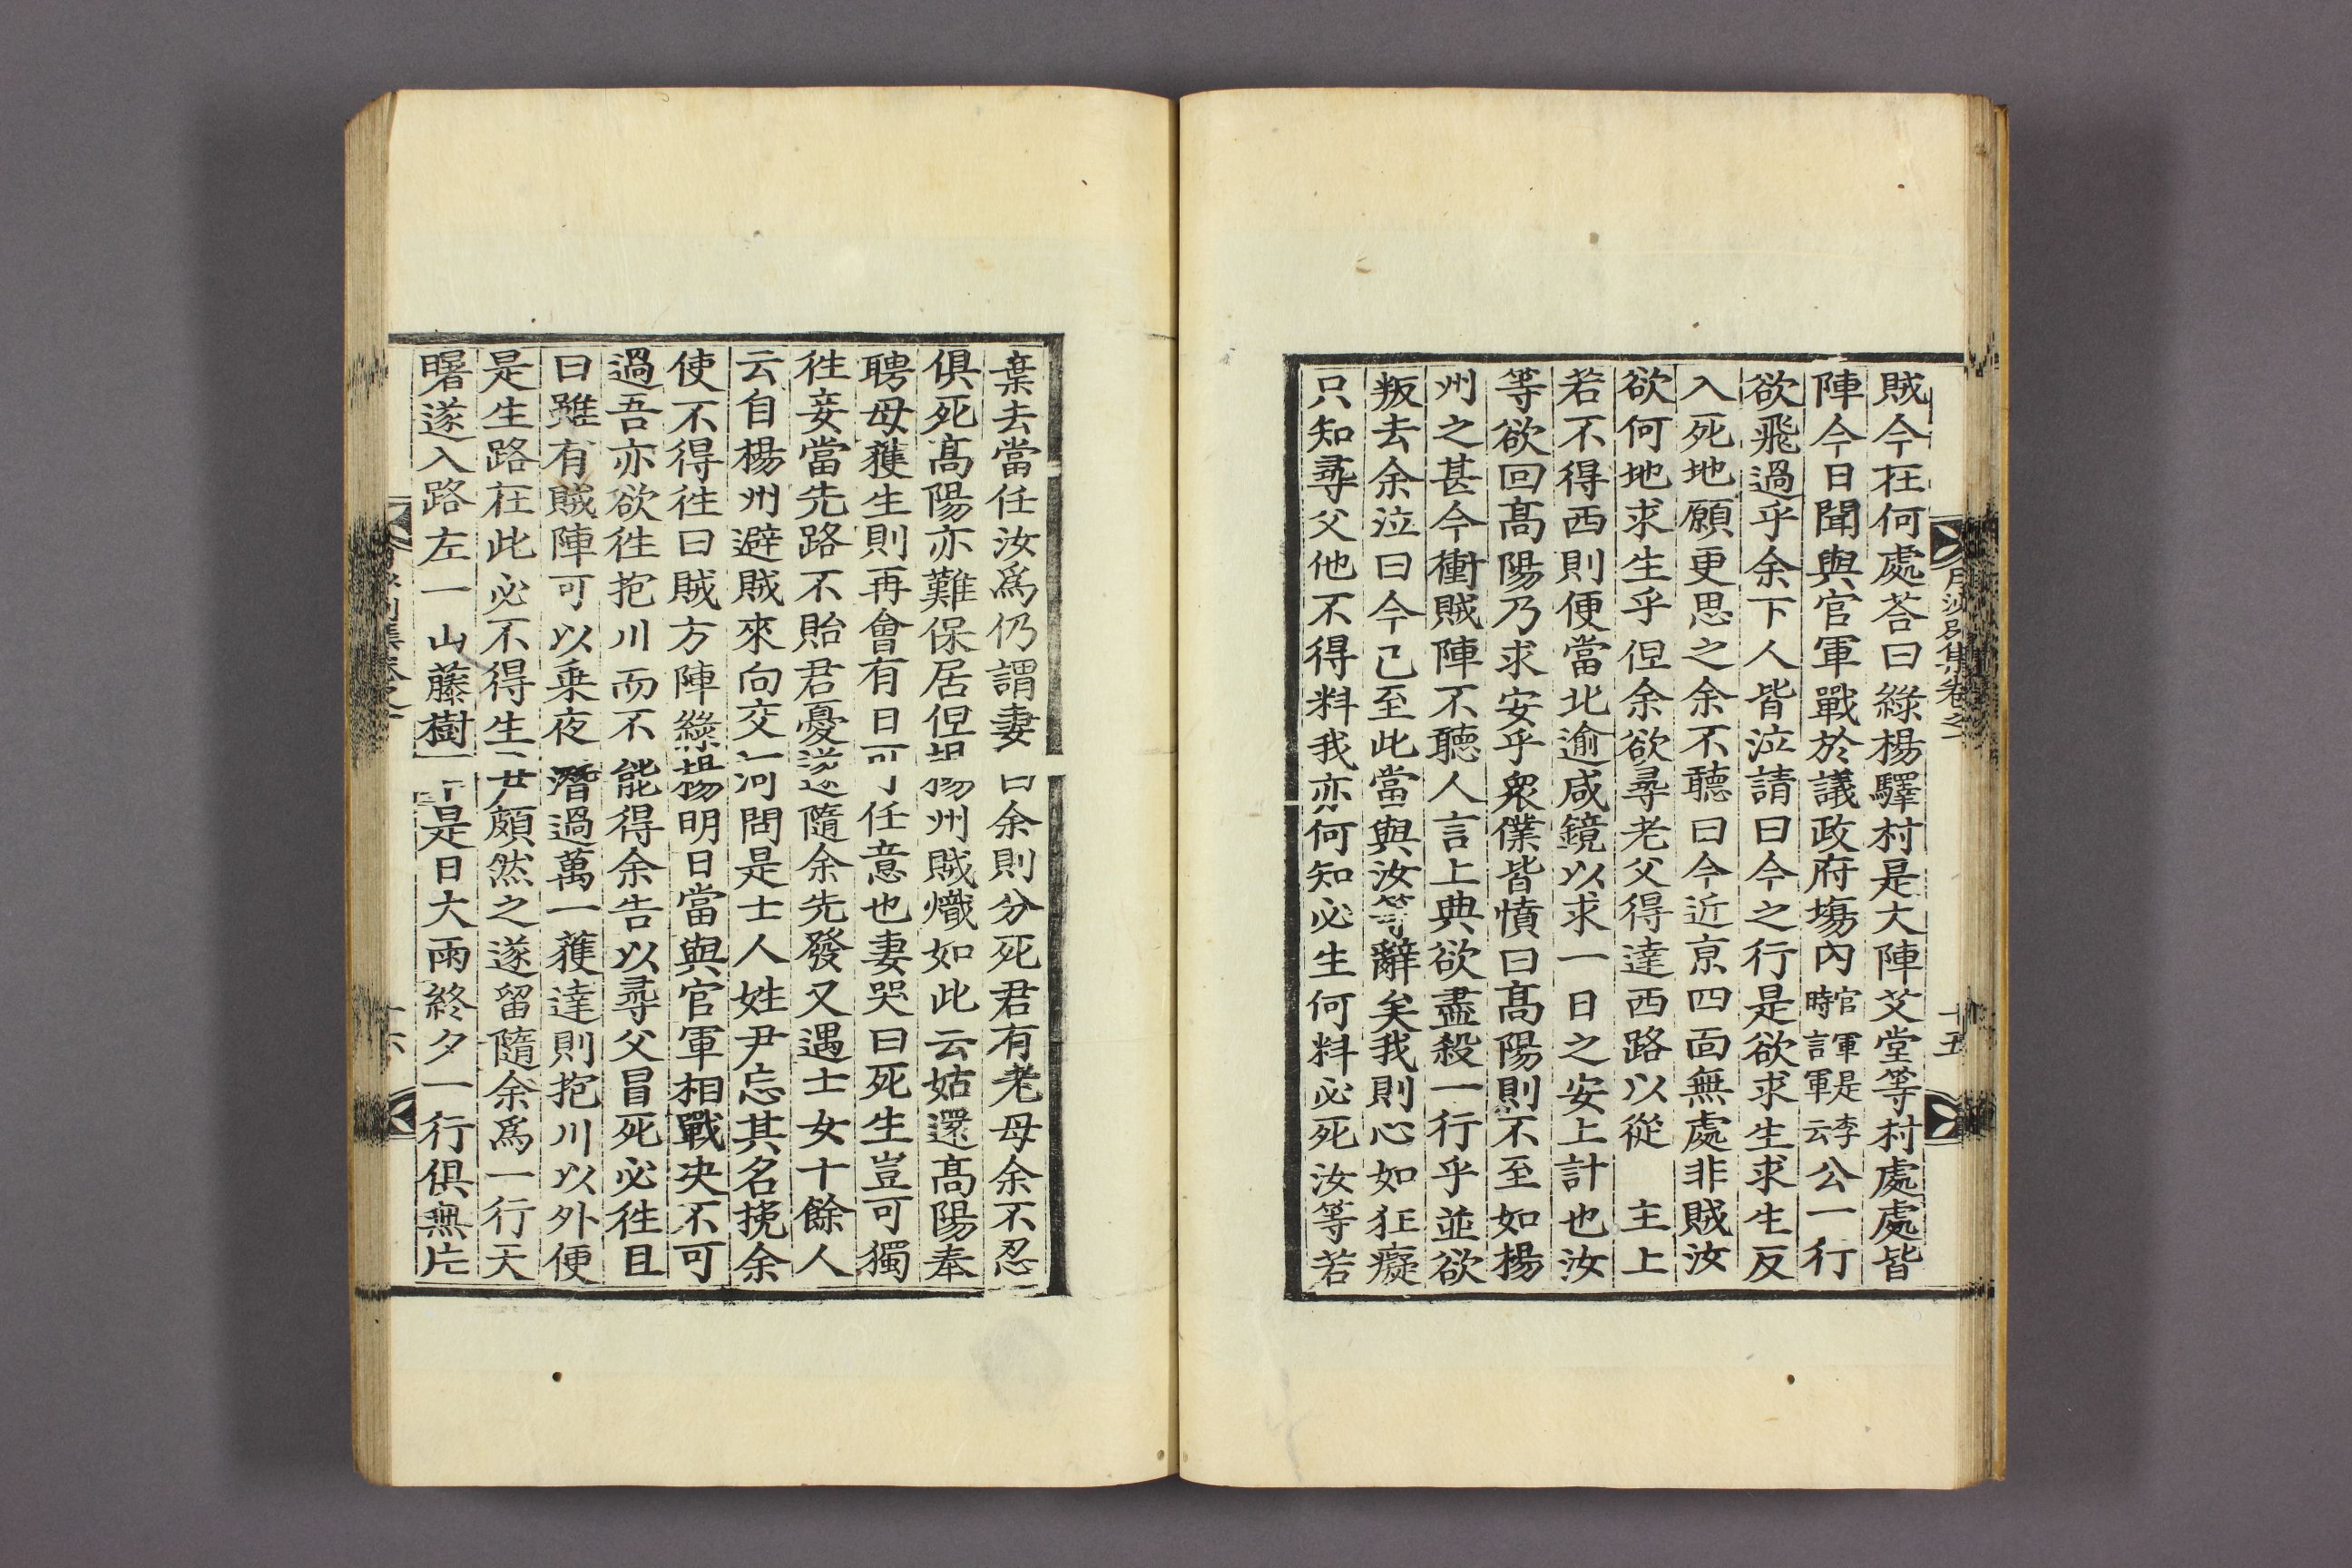 賊今在何處答曰綠楊驛村是大陣艾堂等村處處皆
陣今日聞與官軍戰於議政府塲內官軍是李時言軍云公一行
欲飛過乎余下人皆泣請曰今之行是欲求生求生反
入死地願更思之余不聽曰今近京四面無處非賊汝
欲何地求生乎但余欲尋老父得達西路以從 主上
若不得西則便當北逾咸鏡以求一日之安上計也汝
等欲回高陽乃求安乎衆僕皆憤曰高陽則不至如楊
州之甚今衝賊陣不聽人言上典欲盡殺一行乎並欲
叛去余泣曰今已至此當與汝等辭矣我則心如狂癡
只知尋父他不得料我亦何知必生何料必死汝等若
月沙別集卷之一
十五
棄去當任汝爲仍謂妻曰余則分死君有老母余不忍
俱死高陽亦難保居但楊州賊熾如此云姑還高陽奉
聘母獲生則再會有日可任意也妻哭曰死生豈可獨
徃妾當先路不貽君憂遂隨余先發又遇士女十餘人
云自楊州避賊來向交河問是士人姓尹忘其名挽余
使不得徃曰賊方陣綠楊明日當與官軍相戰决不可
過吾亦欲徃抱川而不能得余告以尋父冒死必徃且
曰雖有賊陣可以乗夜潛過萬一獲達則抱川以外便
是生路在此必不得生尹頗然之遂留隨余爲一行天
曙遂入路左一山藤樹下是日大雨終夕一行俱無片
十六